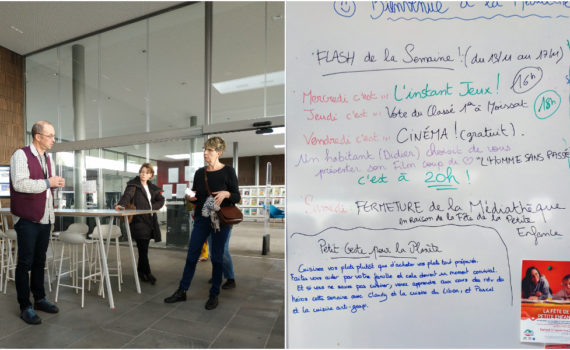 Bienvenue à la Médiathèque
FLASH de la Semaine ! (du 13/11 au 17/11)
Mercredi c'est ... L'instant Jeux ! 16h
Jeudi c'est ... Vote du Classé 1er à Moissat 18h
Vendredi c'est ... CINÉMA ! (gratuit).
Un habitant (Didier) choisit de vous
présenter son Film coup de ♡ "L'HOMME SANS PASSÉ
c'est à 20h !
Samedi FERMETURE de la Médiathèque
en raison de la Fête de la Petite
Enfance
Petit Geste pour la Planète
Cuisinez vos plats plutôt que d'acheter vos plats tout préparés.
Faites vous aider par votre famille et cela devient un moment convivial.
Et si vous ne savez pas cuisiner, venez apprendre aux cours des
héros cette semaine avec et la cuisine du Liban, et Pascal
et la cuisine anti-gaspi.
LA FÊTE DE LA
PETITE ENFANCE